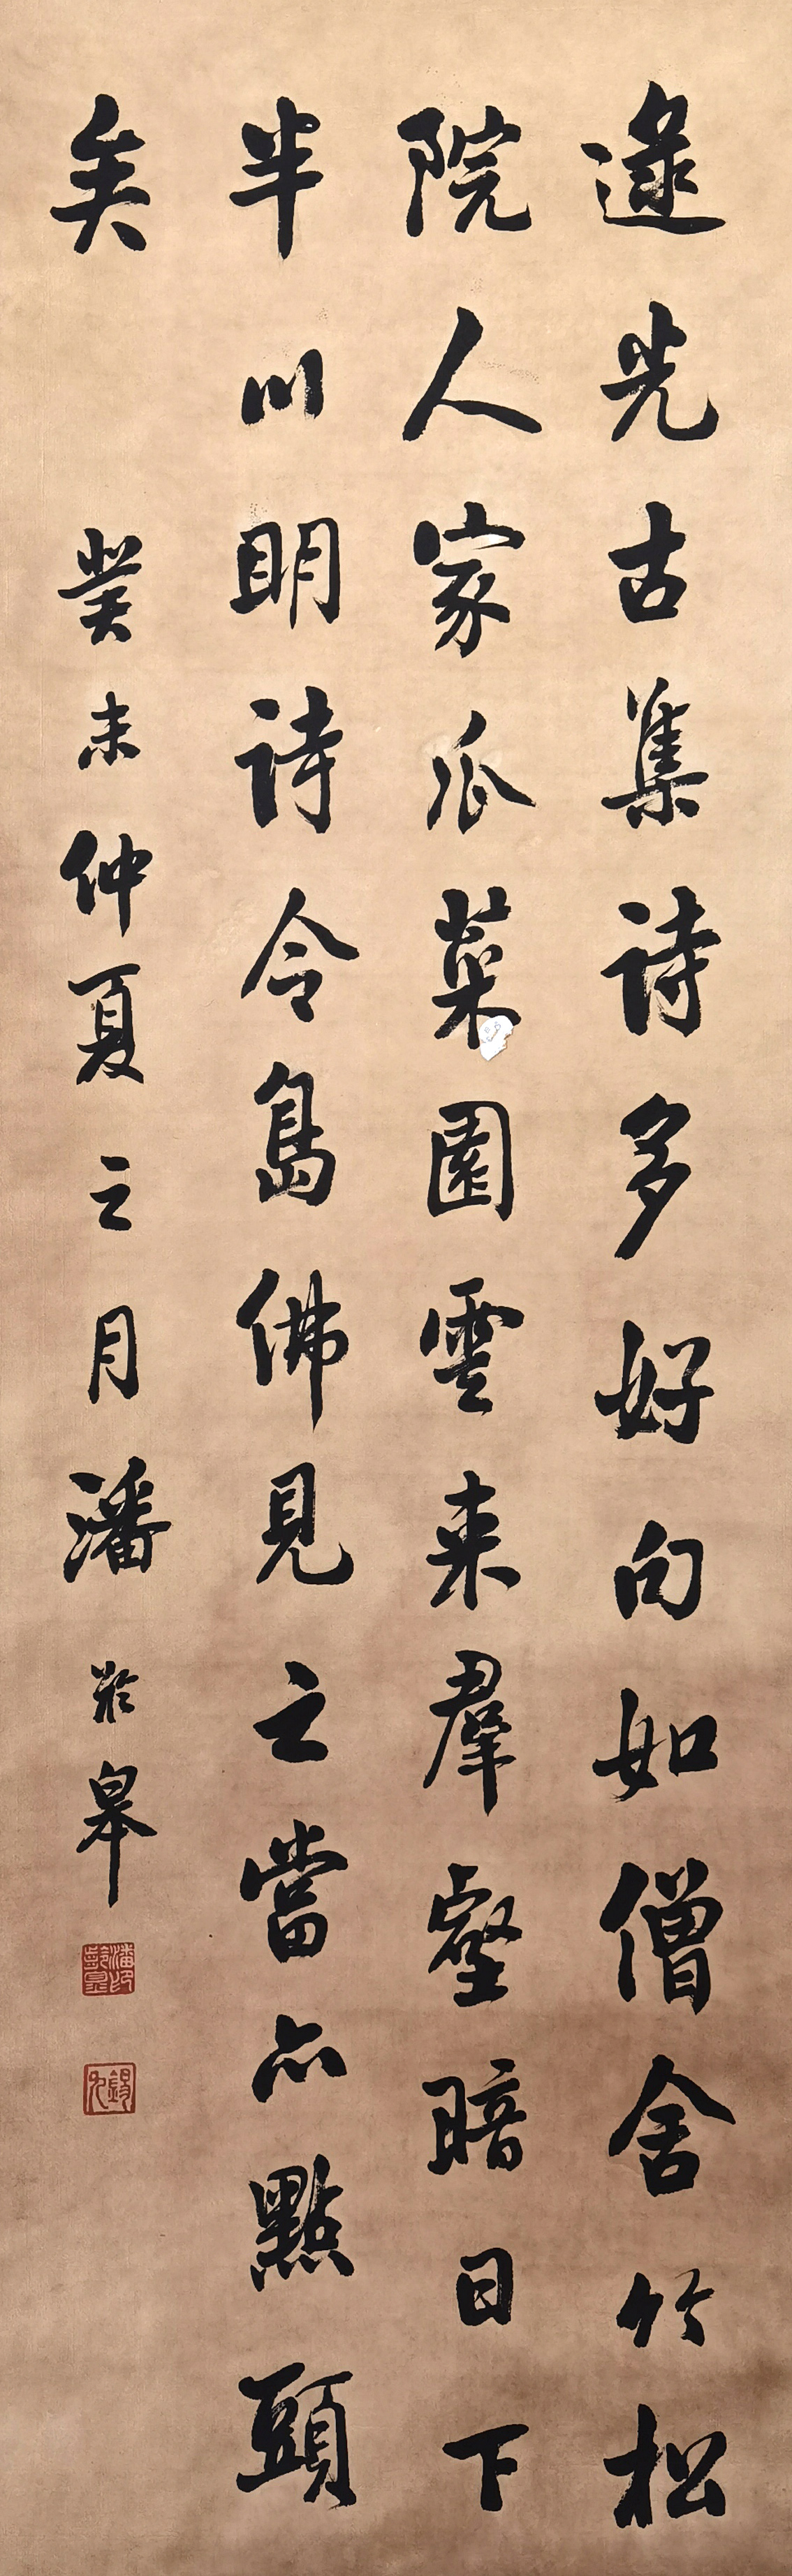 逯光古集詩多好句如僧舍竹松
院人家瓜菜園雲来羣壑暗日下
半川明詩令島佛見之當亦點頭
矣 癸未仲夏之月潘齡皋
潘印齡皋
錫九